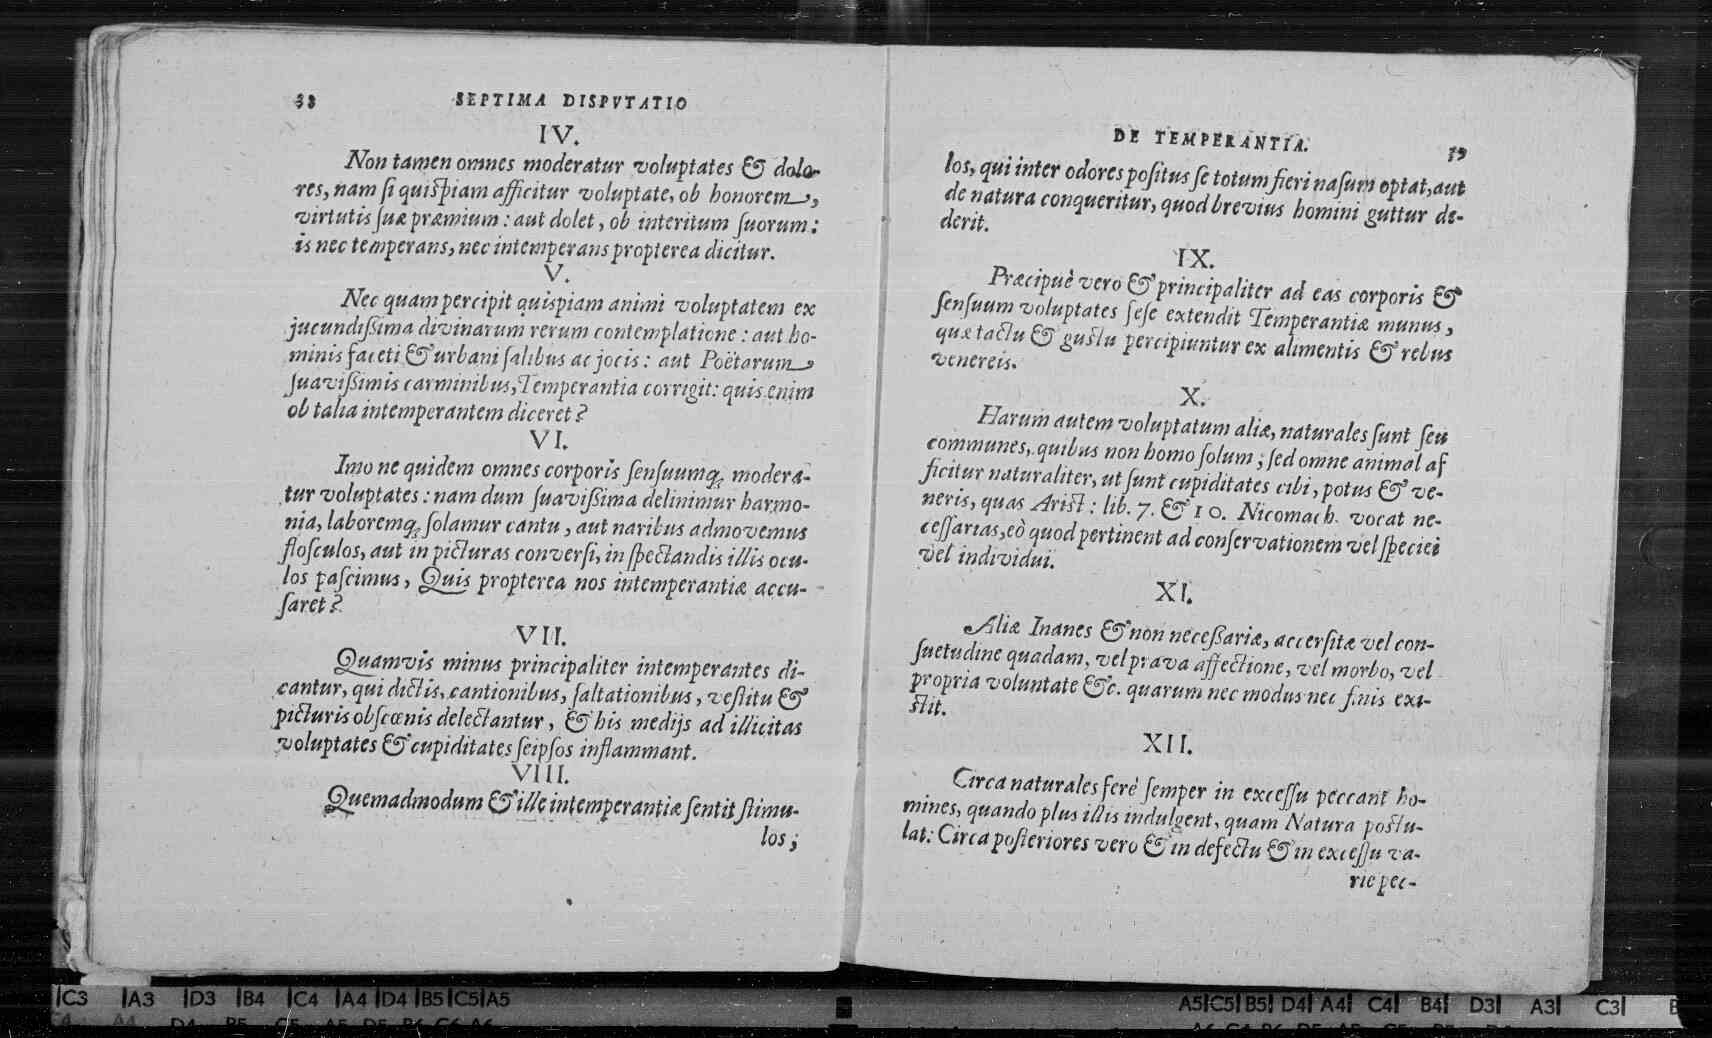 38 SEPTIMA DISPVTATIO
IV.
Non tamen omnes moderatur voluptates & dolo-
res, nam ſi quiſpiam afficitur voluptate, ob honorem,
virtutis ſuæ præmium: aut dolet, ob interitum ſuorum:
is nec temperans, nec intemperans propterea dicitur.
V.
Nec quam percipit quispiam animi voluptatem ex
jucundißima divinarum rerum contemplatione: aut ho-
minis faceti & urbani ſalibus ac jocis: aut Poëtarum
ſuavißimis carminibus, Temperantia corrigit: quis enim
ob talia intemperantem diceret?
VI.
Imo ne quidem omnes corporis ſenſuumq; modera-
tur voluptates: nam dum ſuavißima delinimur harmo-
nia, laboremq; ſolamur cantu, aut naribus admovemus
floſculos, aut in picturas converſi, in ſpectandis illis ocu-
los paſcimus, Quis propterea nos intemperantiæ accu-
ſaret?
VII.
Quamvis minus principaliter intemperantes di-
cantur, qui dictis, cantionibus, ſaltationibus, veſtitu &
picturis obſcœnis delectantur, & his medijs ad illicitas
voluptates & cupiditates ſeipſos inflammant.
VIII.
Quemadmodum & ille intemperantiæ ſentit ſtimu-
los;
DE TEMPERANTIA. 39
los, qui inter odores poſitus ſe totum fieri naſum optat, aut
de natura conqueritur, quod brevius homini guttur de-
derit.
IX.
Præcipuè vero & principaliter ad eas corporis &
ſenſuum voluptates ſeſe extendit Temperantiæ munus,
quæ tactu & guſtu percipiuntur ex alimentis & rebus
venereis.
X.
Harum autem voluptatum aliæ, naturales ſunt ſeu
communes, quibus non homo ſolum; ſed omne animal af
ficitur naturaliter, ut ſunt cupiditates cibi, potus & ve-
neris, quas Ariſt: lib. 7. & 10. Nicomach. vocat ne-
ceſſarias, eò quod pertinent ad conſervationem vel ſpeciei
vel individui.
XI.
Aliæ Inanes & non neceßariæ, accerſitæ vel con-
ſuetudine quadam, vel prava affectione, vel morbo, vel
propria voluntate &c. quarum nec modus nec finis exi-
ſtit.
XII.
Circa naturales ferè ſemper in exceſſu peccant ho-
mines, quando plus illis indulgent, quam Natura poſtu-
lat: Circa poſteriores vero & in defectu & in exceſſu va-
rie pec-
C3 A3 D3 B4 C4 A4 D4 B5 C5 A5
A5 C5 B5 D4 A4 C4 B4 D3 A3 C3